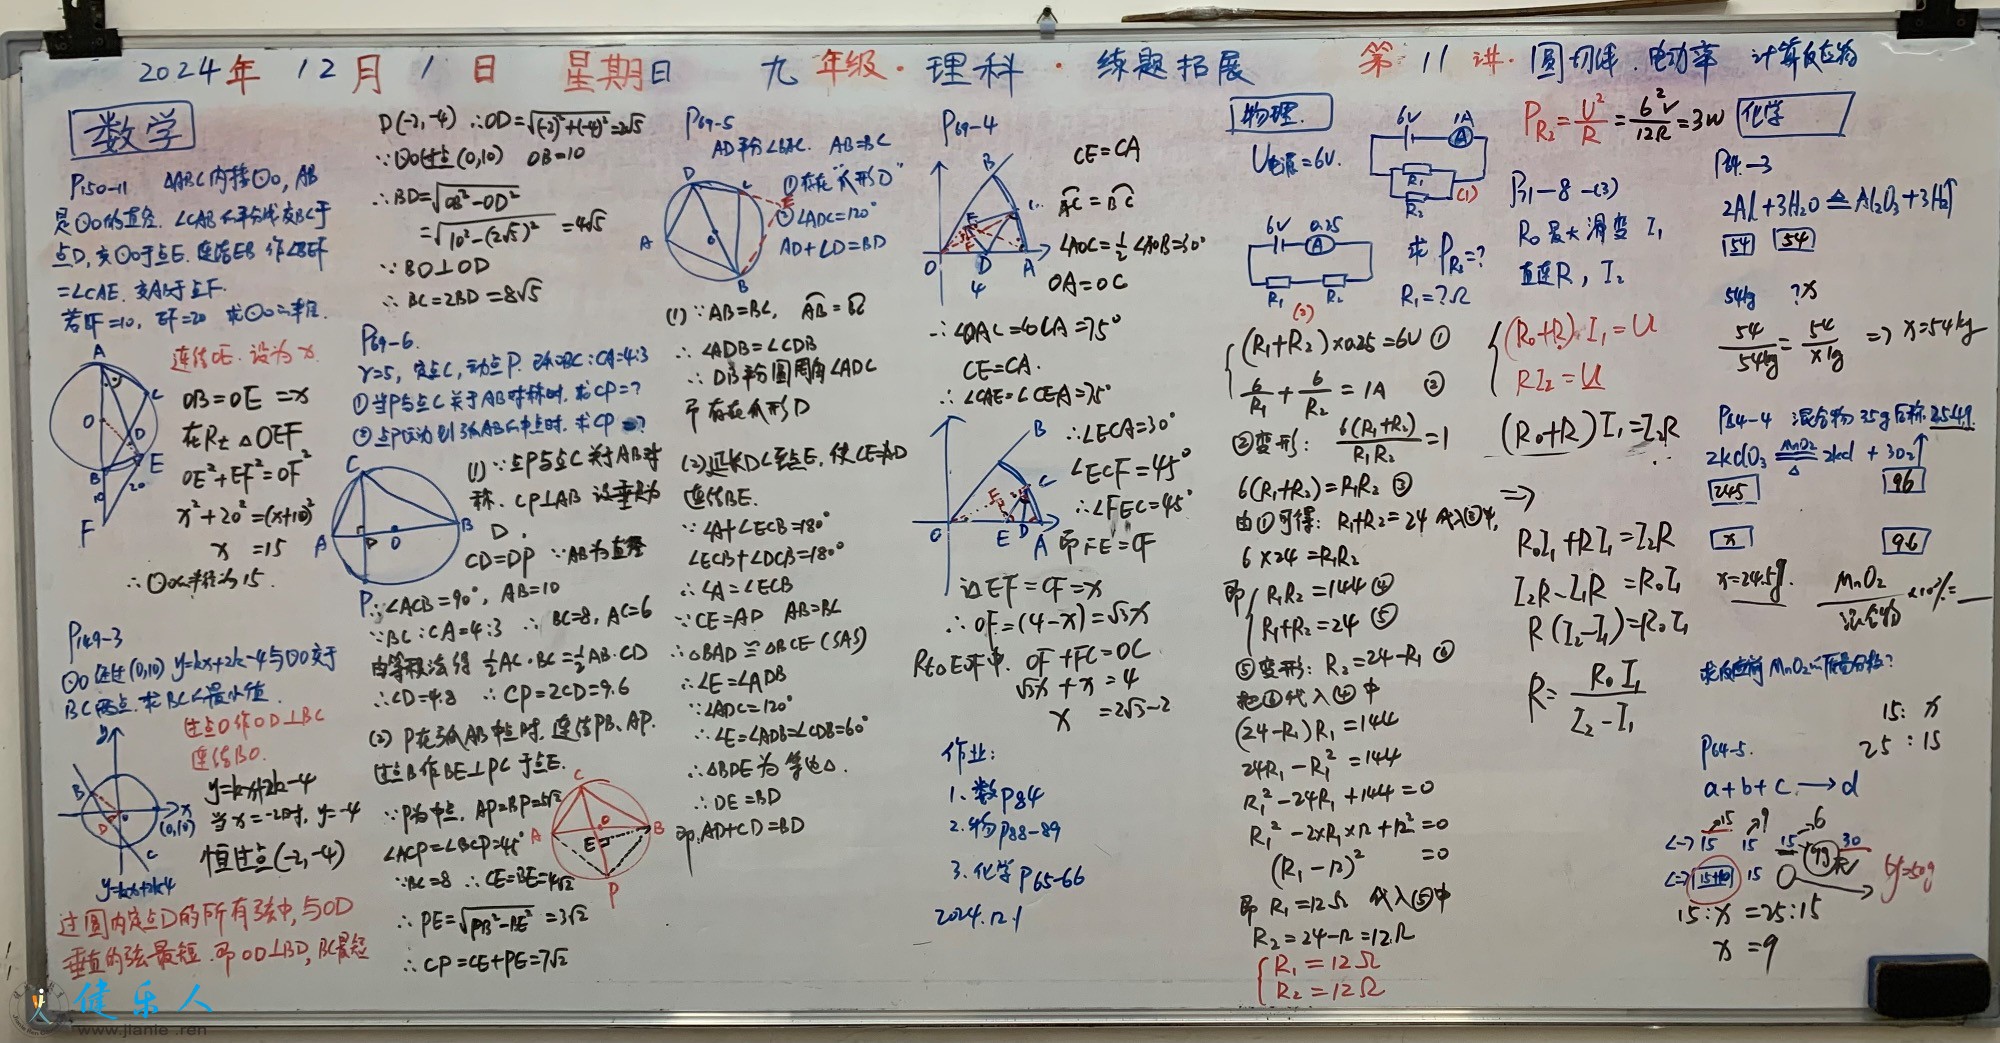 2024年 12月 1日 星期日 九年级·理科·练题拓展 第11讲·圆切线.电功率 计算反应物
数学
P150-11 △ABC内接⊙O, AB
是⊙O的直径. ∠CAB的平分线交BC于
点D, 交⊙O于点E. 连结EB 作∠BEF
=∠CAE. 交AB于点F.
若BF=10, EF=20 求⊙O的半径.
连结OE. 设为x.
OB=OE=x
在Rt△OEF
OE²+EF²=OF²
x²+20²=(x+10)²
x =15
∴⊙O的半径为15.
A
O
C
D
B
E
10
20
F
P149-3
⊙O经过(0,10) y=kx+2k-4与⊙O交于
BC两点. 求BC的最小值.
过点O作OD⊥BC
连结BO.
y=kx+2k-4
当x=-2时, y=-4
恒过点(-2,-4)
y
B
D
o
x
(0,10)
C
y=kx+2k-4
过圆内定点D的所有弦中, 与OD
垂直的弦最短. 即OD⊥BD, BC最短
D(-2,-4) ∴OD=√(-2)²+(-4)²=2√5
∵⊙O过点(0,10) OB=10
∴BD=√OB²-OD²
=√10²-(2√5)² =4√5
∵BO⊥OD
∴BC=2BD=8√5
P69-6.
r=5, 定点C, 动点P. BC:CA=4:3
①当P与点C关于AB对称时. 求CP=?
②点P运动到弧AB的中点时. 求CP=?
C
A
D
O
B
P
(1)∵点P与点C关于AB对
称. CP⊥AB 设垂足为
D.
CD=DP ∵AB为直径
∴∠ACB=90°, AB=10
∵BC:CA=4:3 ∴BC=8, AC=6
由等积法得 ½AC·BC=½AB·CD
∴CD=4.8 ∴CP=2CD=9.6
(2) P在弧AB中点时. 连结PB、AP.
过点B作BE⊥PC于点E.
∵P为中点, AP=BP=5√2
∠ACP=∠BCP=45°
∵BC=8 ∴CE=BE=4√2
∴PE=√PB²-BE² =3√2
∴CP=CE+PE=7√2
C
A
O
B
E
P
P69-5
AD平分∠BAC. AB=BC
①存在"爪形D"
②∠ADC=120°
AD+CD=BD
D
C
E
A
O
B
(1)∵AB=BC, AB=BC
∴∠ADB=∠CDB
∴DB平分圆周角∠ADC
即存在爪形D
(2)延长DC至点E, 使CE=AD
连结BE.
∵∠A+∠ECB=180°
∠ECB+∠DCB=180°
∴∠A=∠ECB
∵CE=AD AB=BC
∴△BAD≌△BCE(SAS)
∴∠E=∠ADB
∵∠ADC=120°
∴∠E=∠ADB=∠CDB=60°
∴△BDE为等边△.
∴DE=BD
即AD+CD=BD
P69-4
B
E
C
F
O
D
A
4
CE=CA
AC=BC
∠AOC=½∠AOB=30°
OA=OC
∴∠OAC=∠OCA=75°
CE=CA.
∴∠CAE=∠CEA=75°
B
C
F
O
E
D
A
∴∠ECA=30°
∠ECF=45°
∴∠FEC=45°
即FE=CF
设EF=CF=x
∴OF=(4-x)=√3x
Rt△OEF中. OF+FC=OC
√3x+x=4
x =2√3-2
作业:
1.数P84
2.物P88-89
3.化学P65-66
2024.12.1
物理.
U电源=6V.
6V 1A
A
R1
R2
(1)
6V 0.25
A
R1 R2
(2)
求PR2=?
R1=?Ω
(R1+R2)×0.25=6V ①
6/R1 + 6/R2 = 1A ②
②变形: 6(R1+R2)/R1R2 =1
6(R1+R2)=R1R2 ③
由①可得: R1+R2=24 代入③中,
6×24=R1R2
即 R1R2=144 ④
R1+R2=24 ⑤
⑤变形: R2=24-R1 ⑥
把⑥代入④中
(24-R1)R1=144
24R1-R1²=144
R1²-24R1+144=0
R1²-2×R1×12+12²=0
(R1-12)² =0
即 R1=12Ω 代入⑤中
R2=24-12=12Ω
R1=12Ω
R2=12Ω
PR2=U²/R=6²V/12R=3W
P31-8-(3)
R0最大滑变 I1
直连R, I2
(R0+R)I1=U
RI2=U
(R0+R)I1=I2R
=>
R0I1+RI1=I2R
I2R-I1R=R0I1
R(I2-I1)=R0I1
R=R0I1/I2-I1
化学
P64-3
2Al+3H2O≜Al2O3+3H2↑
54 54
54kg ?x
54/54kg=54/xkg => x=54kg
P64-4 混合物35g 后称25.4g.
2KClO3 MnO2 △ 2KCl+3O2↑
245 96
x 9.6
x=24.5g. MnO2/混合物×100%=
求反应前MnO2的质量分数?
15:x
25:15
P64-5.
a+b+c→d
15 9 6
<-> 15 15 15 30
<=> 15+10 15 0
15:x=25:15
x=9
健乐人
www.jianle.ren